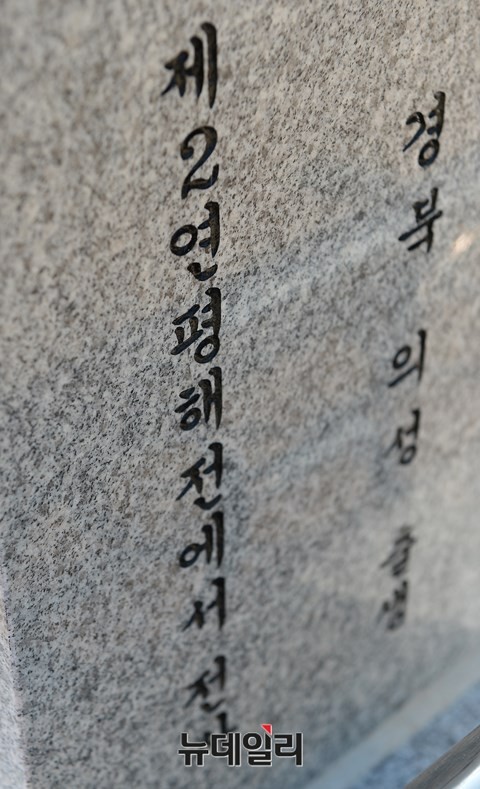 경북 의성 출생
제2연평해전에서 전
뉴데일리